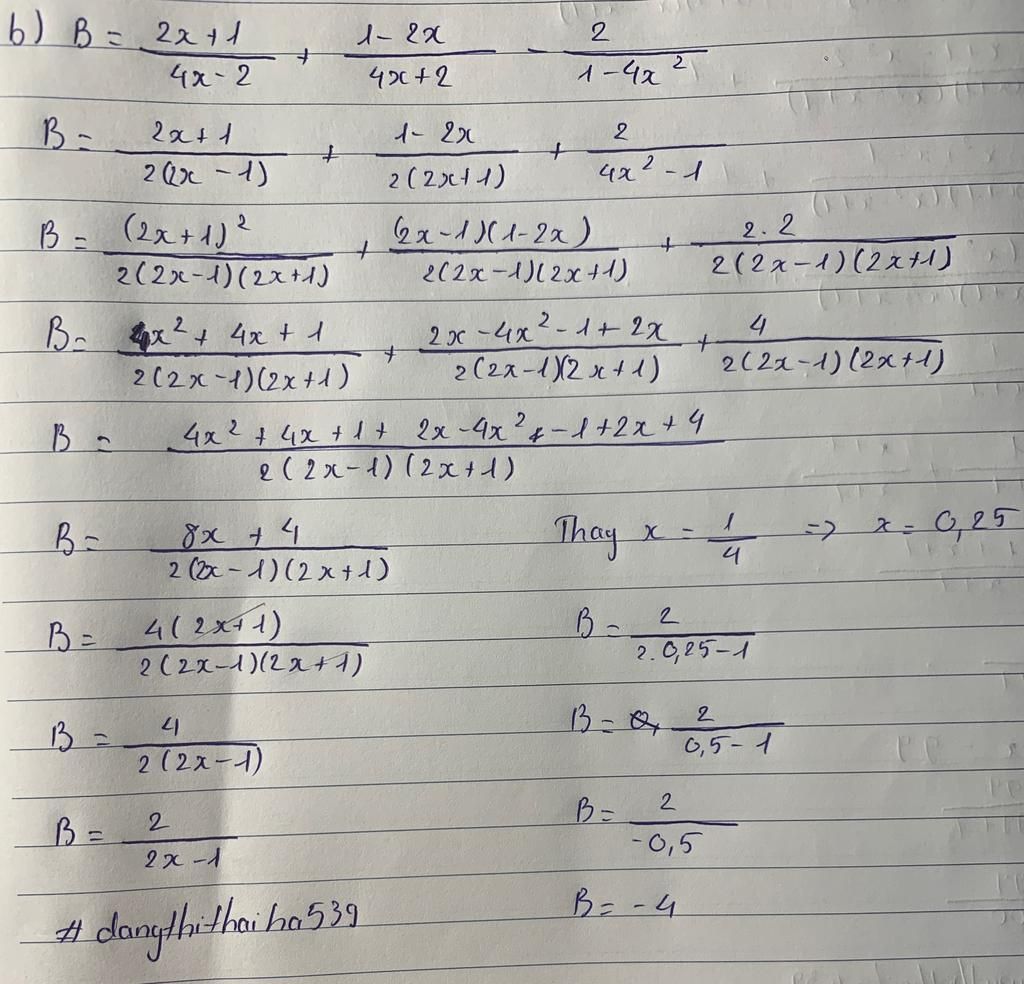 b) B = (2x+1)/(4x-2) + (1-2x)/(4x+2) - 2/(1-4x²)
B = (2x+1)/(2(2x-1)) + (1-2x)/(2(2x+1)) + 2/(4x²-1)
B = (2x+1)²/(2(2x-1)(2x+1)) + (2x-1)(1-2x)/(2(2x-1)(2x+1)) + 2.2/(2(2x-1)(2x+1))
B = (4x²+4x+1)/(2(2x-1)(2x+1)) + (2x-4x²-1+2x)/(2(2x-1)(2x+1)) + 4/(2(2x-1)(2x+1))
B = (4x²+4x+1+2x-4x²-1+2x+4)/(2(2x-1)(2x+1))
B = (8x+4)/(2(2x-1)(2x+1))
B = 4(2x+1)/(2(2x-1)(2x+1))
B = 4/(2(2x-1))
B = 2/(2x-1)
# dangthithaiha539
Thay x = 1/4 => x = 0,25
B = 2/(2.0,25-1)
B = 2/(0,5-1)
B = 2/(-0,5)
B = -4